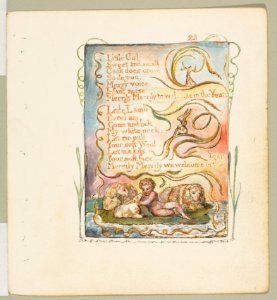 23
Little Girl
Sweet and small
Cock does crow
So do you.
Merry voice
Infant noise
Merrily Merrily to welcome in the Year
Little Lamb
Here I am,
Come and lick
My white neck.
Let me pull
Your soft Wool.
Let me kiss
Your soft face.
Merrily Merrily we welcome in